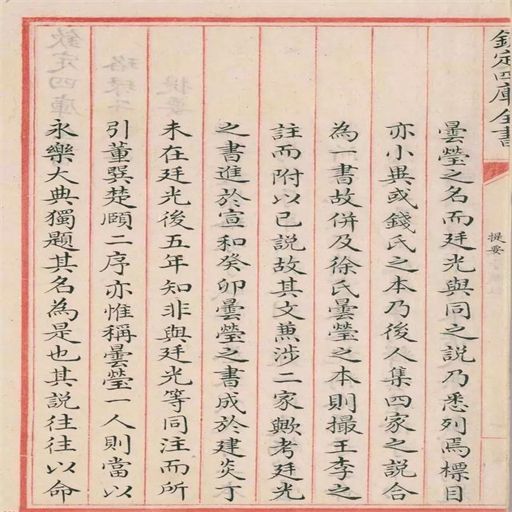 欽定四庫全書
提要
曇瑩之名而廷光與同之説乃悉列焉標目
亦小異或錢氏之本乃後人集四家之説合
為一書故併及徐氏曇瑩之本則撮王李之
註而附以已説故其文蕪涉二家歟考廷光
之書進於宣和癸卯曇瑩之書成於建炎丁
未在廷光後五年知非與廷光等同注而所
引董巽楚頤二序亦惟稱曇瑩一人則當以
永樂大典獨題其名為是也其説往往以命